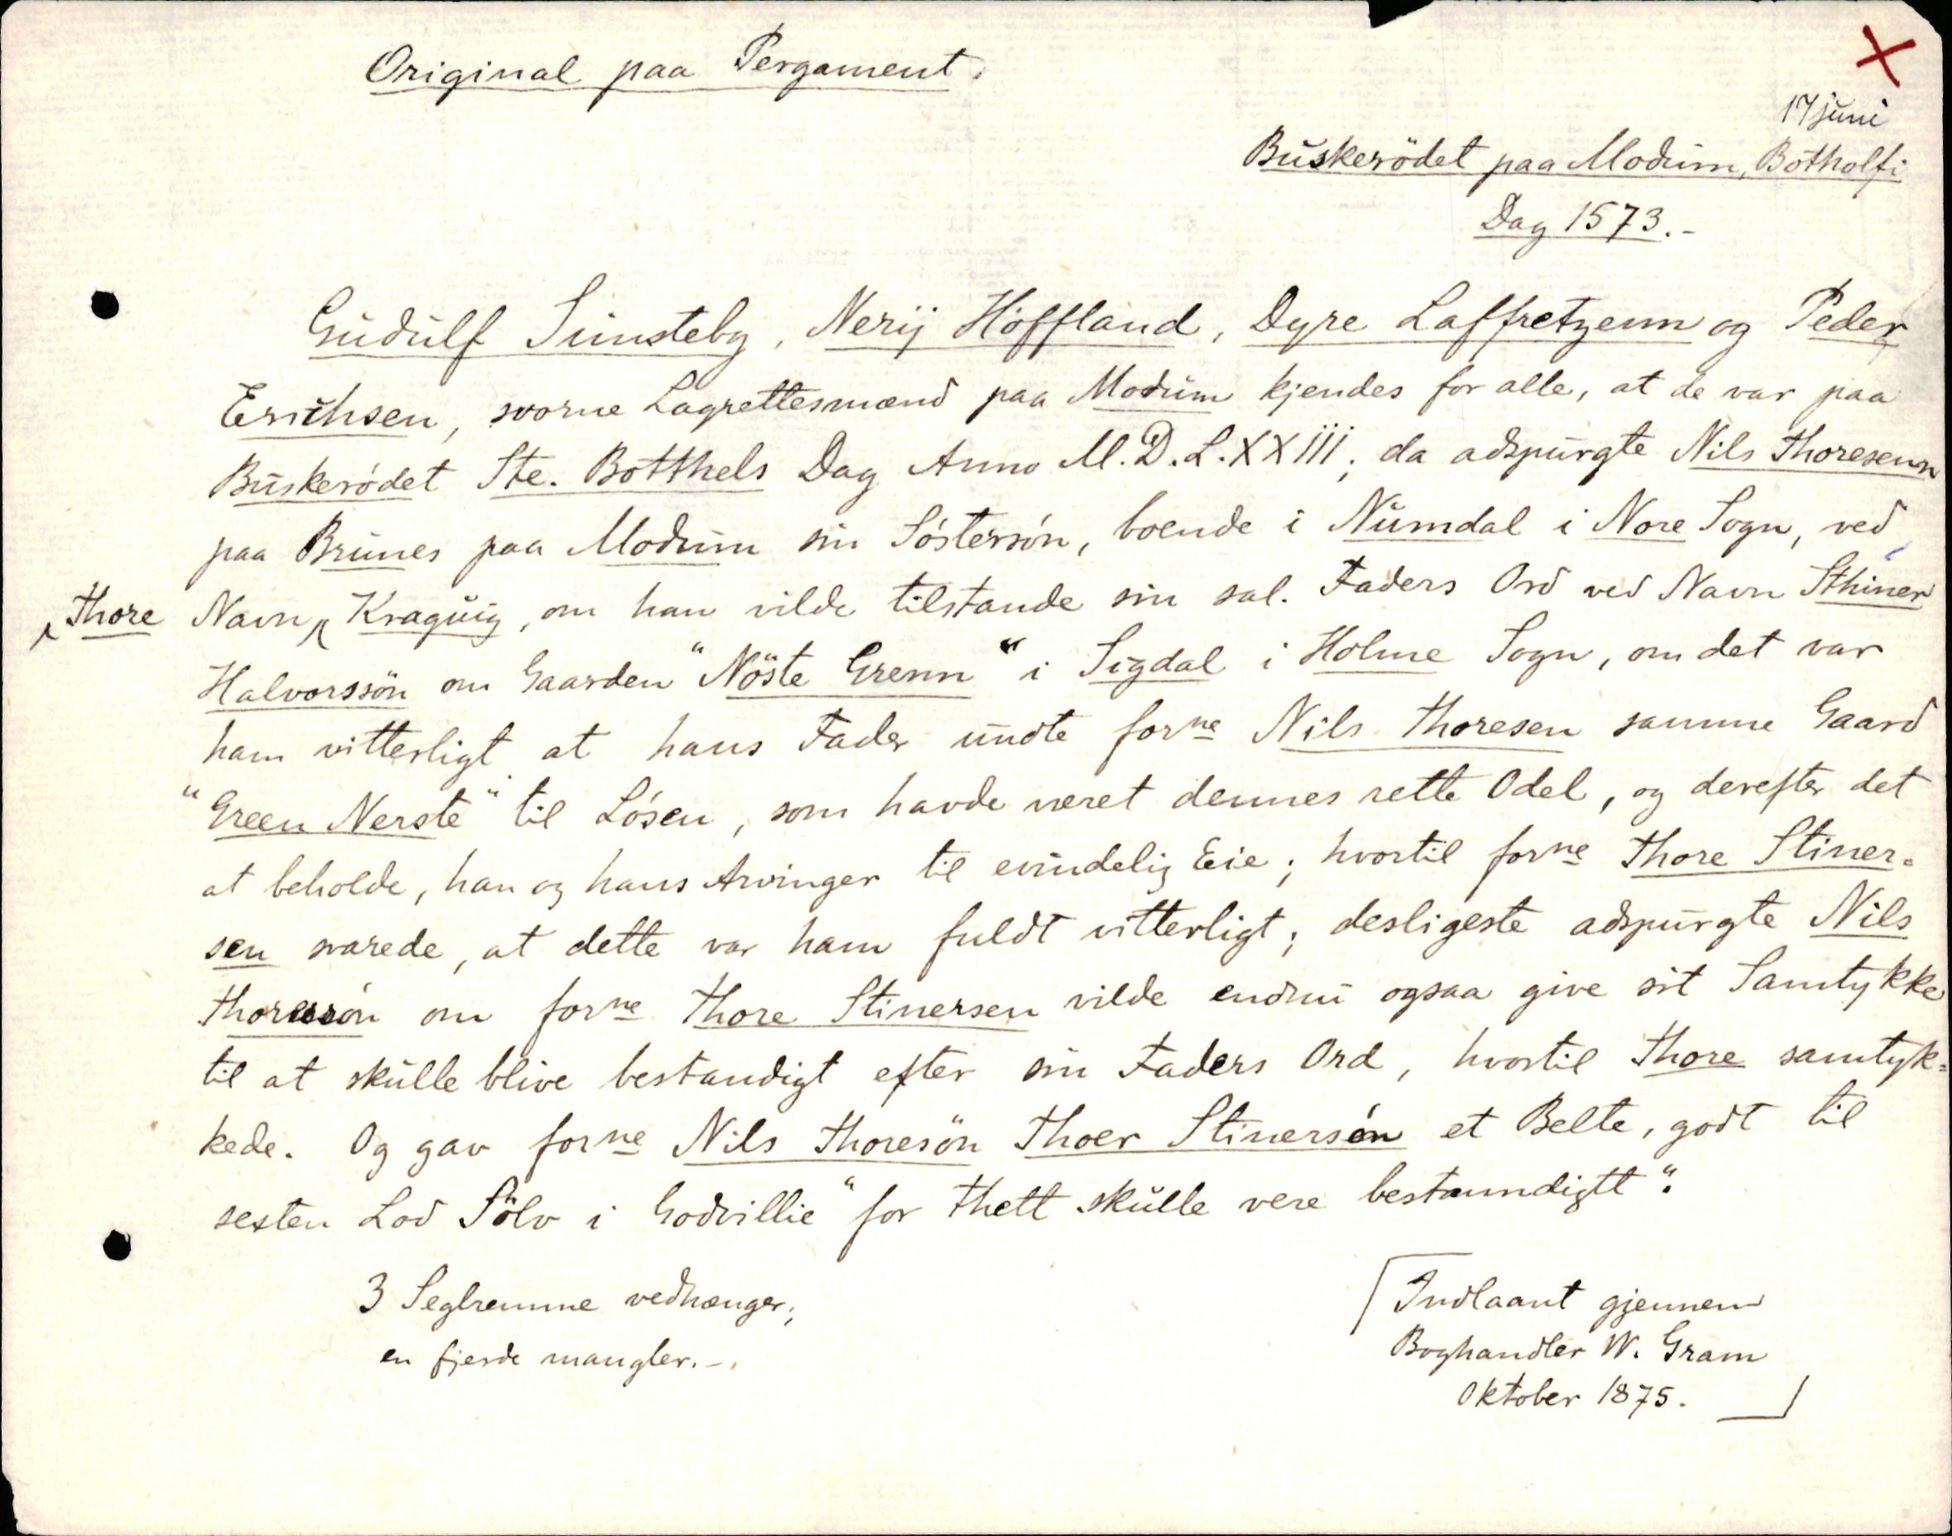 Original paa Pergament.
17 juni
Buskerödet paa Modum, Botholfi
Dag 1573.-
Gudulf Simsteby, Nerij Höffland, Dyre Laffretzenn og Peder
Erichsen, svorne Lagrettesmænd paa Modum kjendes for alle, at de var paa
Buskerödet Ste. Botthels Dag Anno M.D.L.XXIII; da adspurgte Nils Thoresenn
paa Brunes paa Modum sin Söstersön, boende i Numdal i Nore Sogn, ved
Thore Navn Kraguig, om han vilde tilstande sin sal. Faders Ord ved Navn Sthiner
Halvorssön om Gaarden "Nöste Grenn" i Sigdal i Holme Sogn, om det var
ham vitterligt at hans Fader undte forne Nils Thoresen samme Gaard
"Green Nerste" til Lösen, som havde været dennes rette Odel, og derefter det
at beholde, han og hans Arvinger til evindelig Eie; hvortil forne Thore Stiner-
sen svarede, at dette var ham fuldt vitterligt; desligeste adspurgte Nils
Thoressön om forne Thore Stinersen vilde endnu ogsaa give sit Samtykke
til at skulle blive bestandigt efter sin Faders Ord, hvortil Thore samtyk-
kede. Og gav forne Nils Thoresön Thoer Stinersön et Belte, godt til
sexten Lod Sölv i Godvillie "for thett skulle vere bestanndigtt".
3 Seglremme vedhænger;
en fjerde mangler.-
Indlaant gjennem
Boghandler W. Gram
Oktober 1875.